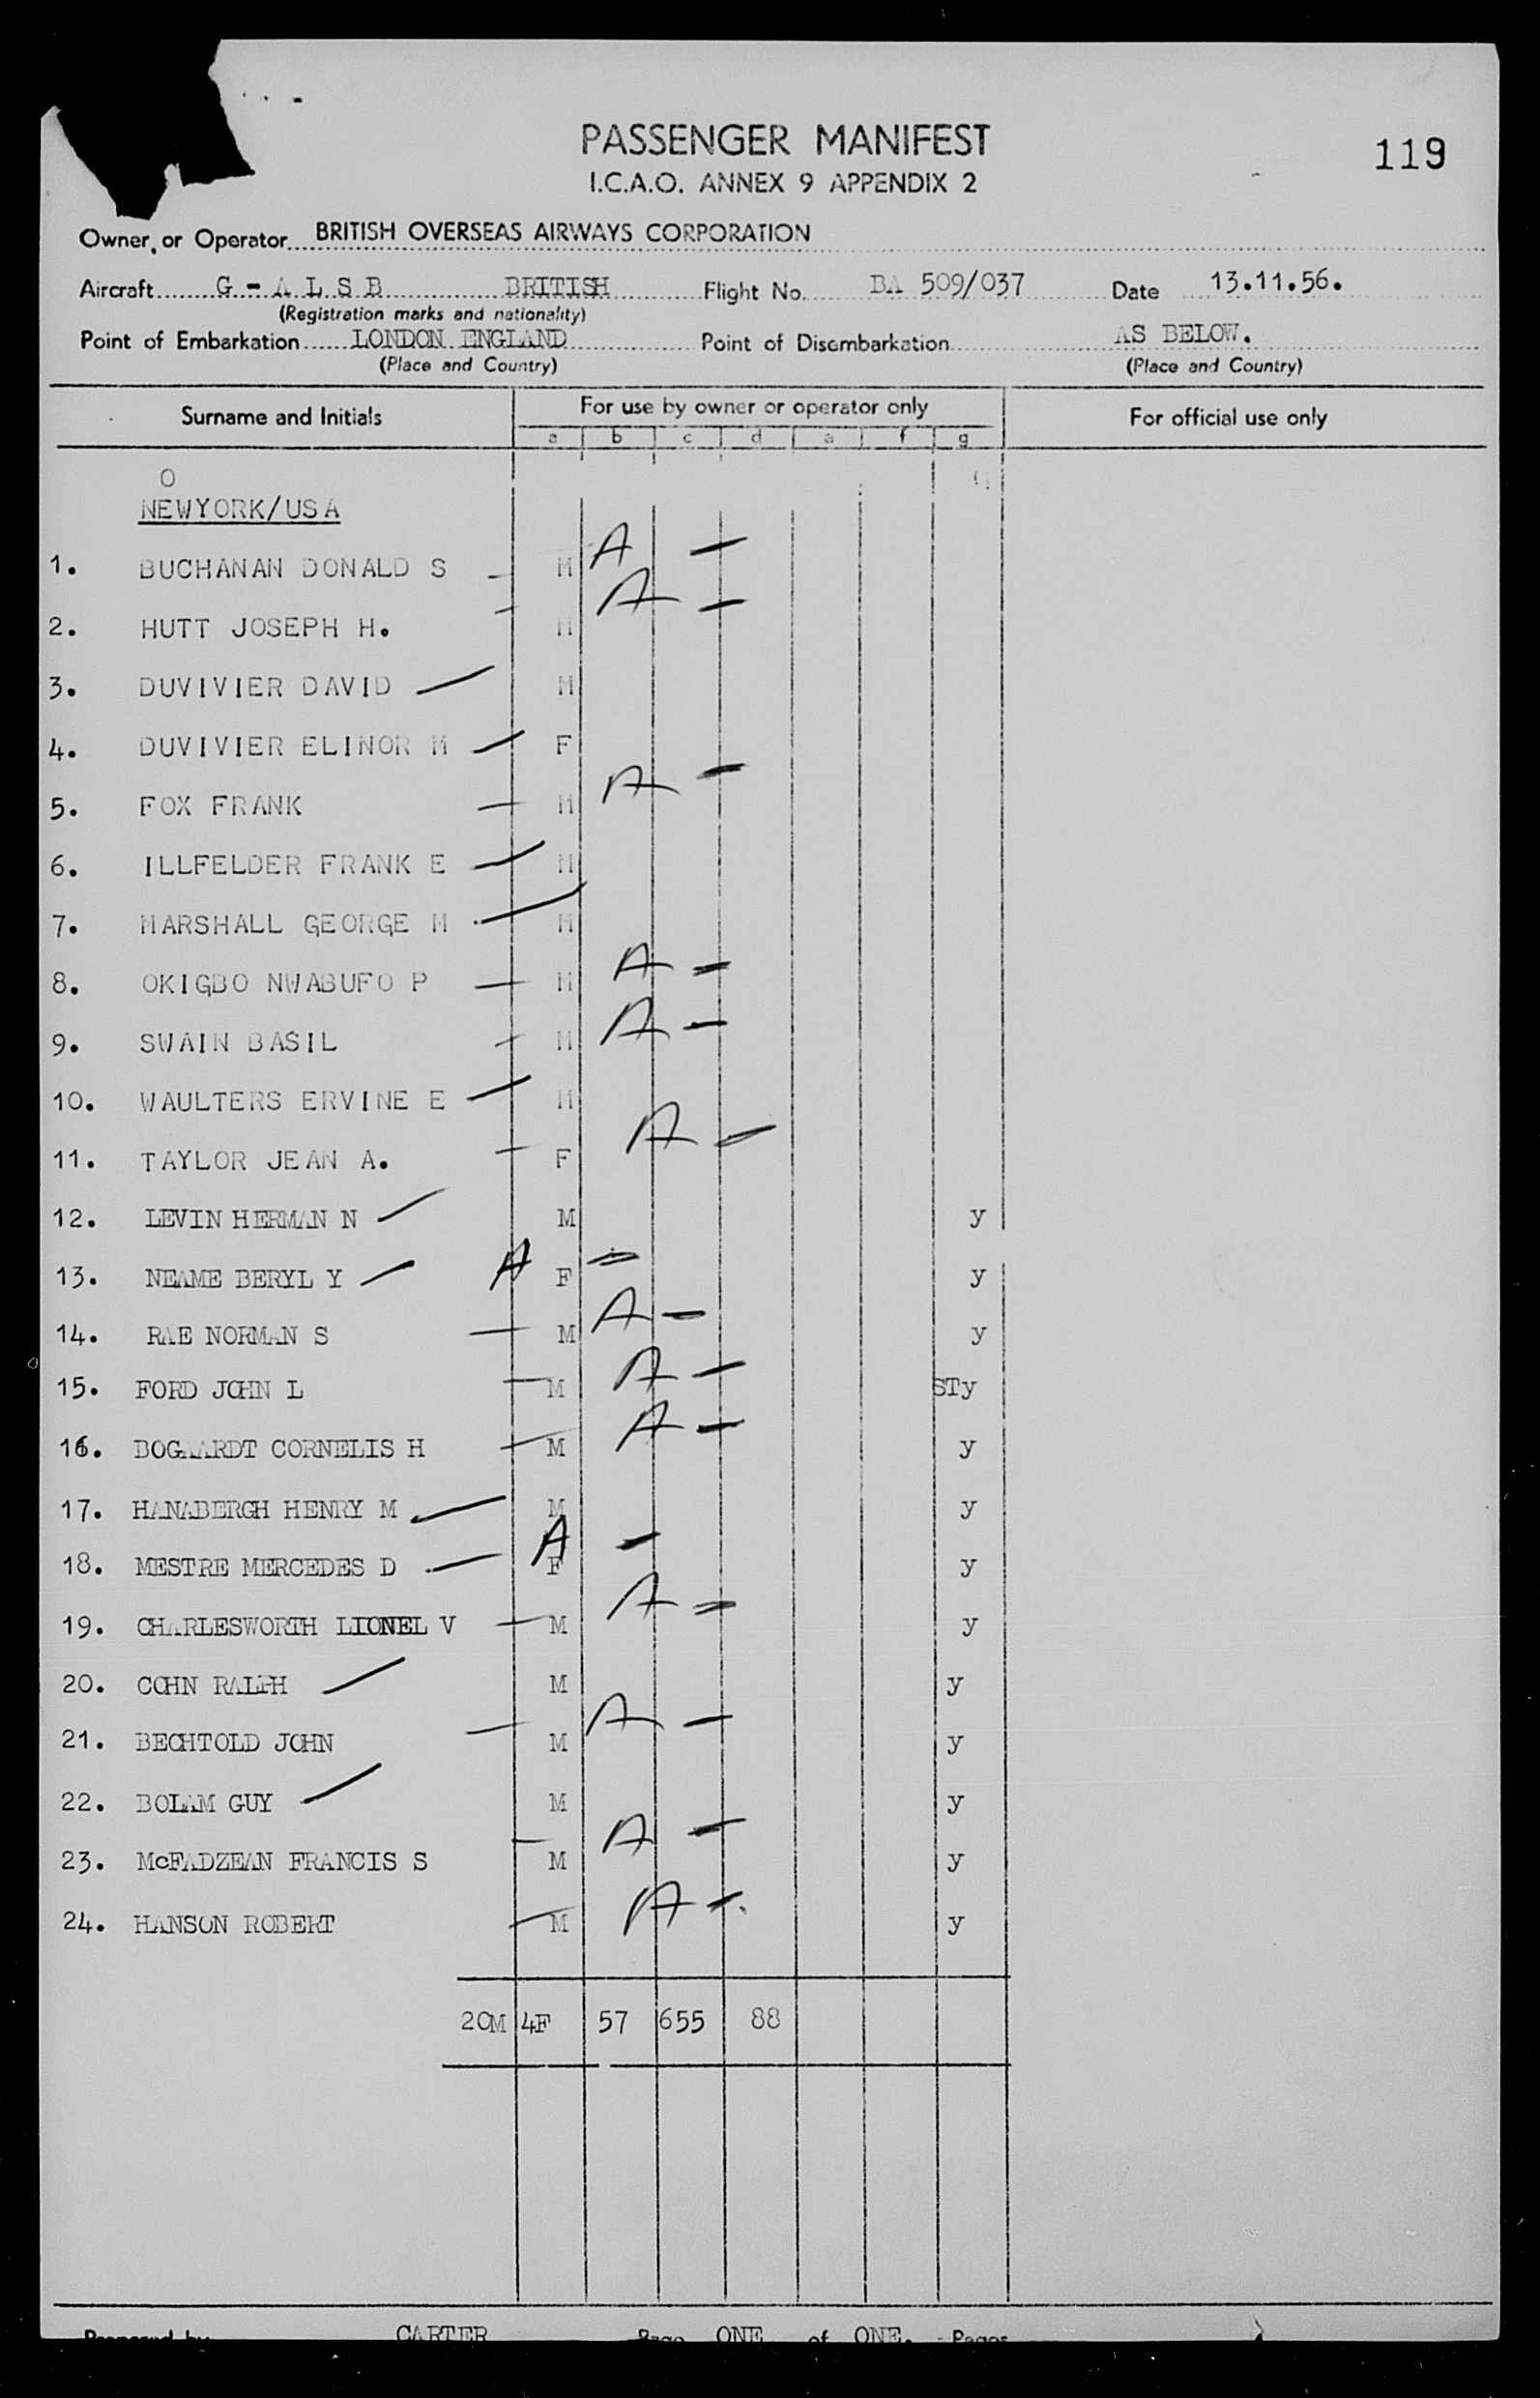 PASSENGER MANIFEST
119
I.C.A.O. ANNEX 9 APPENDIX 2
Owner, or Operator BRITISH OVERSEAS AIRWAYS CORPORATION
Aircraft G - A L S B BRITISH Flight No. BA 509/037 Date 13.11.56.
(Registration marks and nationality)
Point of Embarkation LONDON ENGLAND Point of Disembarkation AS BELOW.
(Place and Country) (Place and Country)
Surname and Initials For use by owner or operator only For official use only
a b c d e f g
O
NEWYORK/USA
1. BUCHANAN DONALD S - M A -
2. HUTT JOSEPH H. - M A -
3. DUVIVIER DAVID M
4. DUVIVIER ELINOR M F
5. FOX FRANK - M A -
6. ILLFELDER FRANK E M
7. MARSHALL GEORGE M M
8. OKIGBO NWABUFO P - M A -
9. SWAIN BASIL - M A -
10. WAULTERS ERVINE E M
11. TAYLOR JEAN A. - F A -
12. LEVIN HERMAN N M y
13. NEAME BERYL Y A F = y
14. RAE NORMAN S - M A - y
15. FORD JOHN L - M A - STy
16. BOGAARDT CORNELIS H - M A - y
17. HANABERGH HENRY M M y
18. MESTRE MERCEDES D A F - y
19. CHARLESWORTH LIONEL V - M A = y
20. COHN RALPH M y
21. BECHTOLD JOHN - M A - y
22. BOLAM GUY M y
23. McFADZEAN FRANCIS S - M A - y
24. HANSON ROBERT - M A - y
20M 4F 57 655 88
Prepared by CARTER Page ONE of ONE. Pages